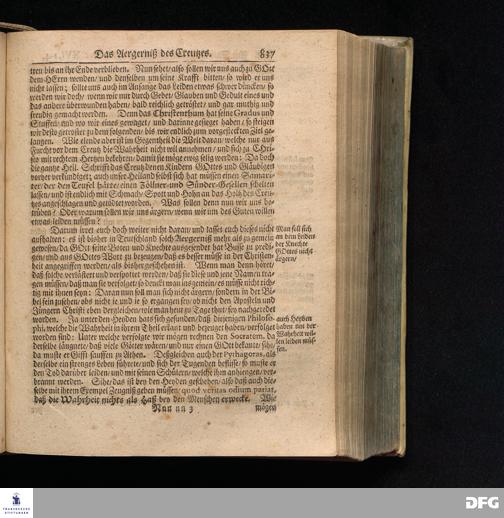 Das Aergerniß des Creutzes. 837
ren bis an ihr Ende verblieben. Nun sehet/ also sollen wir uns auch zu GOtt
dem HErrn wenden/ und denselben um seine Krafft bitten/ so wird er uns
nicht lassen; sollte uns auch im Anfange das Leiden etwas schwer düncken/ so
werden wir doch/ wenn wir nur durch Gebet/ Glauben und Gedult eines und
das andere überwunden haben/ bald reichlich getröstet/ und gar muthig und
freudig gemacht werden. Denn das Christenthum hat seine Gradus und
Stuffen/ und wo wir eines gewaget/ und darinne gesieget haben/ so steigen
wir desto getroster zu dem folgenden/ bis wir endlich zum vorgesteckten Ziel ge-
langen. Wie elende aber ist im Gegentheil die Welt daran/ welche nur aus
Furcht vor dem Creutz die Wahrheit nicht will annehmen/ und sich zu CHri-
sto mit rechtem Hertzen bekehren/ damit sie möge ewig selig werden: Da doch
die gantze Heil. Schrifft das Creutz denen Kindern GOttes und Gläubigen
vorher verkündiget/ auch unser Heiland selbst sich hat müssen einen Samari-
ter/ der den Teufel hätte/ einen Zöllner- und Sünder-Gesellen schelten
lassen/ und ist endlich mit Schmach/ Spott und Hohn an das Holtz des Creu-
tzes angeschlagen und getödtet worden. Was sollen denn nun wir uns be-
trüben? Oder warum sollen wir uns ärgern/ wenn wir um des Guten willen
etwas leiden müssen?
Darum irret euch doch weiter nicht daran/ und lasset euch dieses nicht
aufhalten: es ist bisher in Teutschland solch Aergerniß mehr als zu gemein
gewesen/ da GOtt seine Boten und Knechte ausgesendet hat Busse zu predi-
gen/ und aus GOttes Wort zu bezeugen/ daß es besser müsse in der Christen-
heit angegriffen werden/ als bisher geschehen ist. Wenn man denn höret/
daß solche verlästert und verspottet werden/ daß sie diese und jene Namen tra-
gen müssen/ daß man sie verfolget/ so denckt man insgemein/ es müsse nicht rich-
tig mit ihnen seyn: Daran nun soll man sich nicht ärgern/ sondern in der Bi-
bel sein zusehen/ obs nicht ie und ie so ergangen sey/ ob nicht den Aposteln und
Jüngern Christi eben dergleichen/ wie man heut zu Tage thut/ sey nachgeredet
worden. Ja unter den Heiden hats sich gefunden/ daß diejenigen Philoso-
phi, welche die Wahrheit in ihrem Theil erkant und bezeuget haben/ verfolget
worden sind: Unter welche verfolgte wir mögen rechnen den Socratem. da
derselbe läugnete/ daß viele Götter wären/ und nur einen GOtt bekante/ sihe/
da muste er Gifft sauffen zu Athen. Desgleichen auch der Pythagoras, als
derselbe ein strenges Leben führete/ und sich der Tugenden beflisse/ so muste er
den Tod darüber leiden/ und mit seinen Schülern/ welche ihm anhiengen/ ver-
brannt werden. Sihe/ das ist bey den Heyden geschehen/ also daß auch die-
selbe mit ihrem Exempel Zeugniß geben müssen/ quod veritas odium pariat,
daß die Wahrheit nichts als Haß bey den Menschen erwecke. Wie
Nnn nn 3 mögen
Man soll sich
an dem Leiden
der Knechte
GOttes nicht
ärgern/
auch Heyden
haben um der
Wahrheit wil-
len leiden müs-
sen.
FRANCKESCHE
STIFTUNGEN
DFG